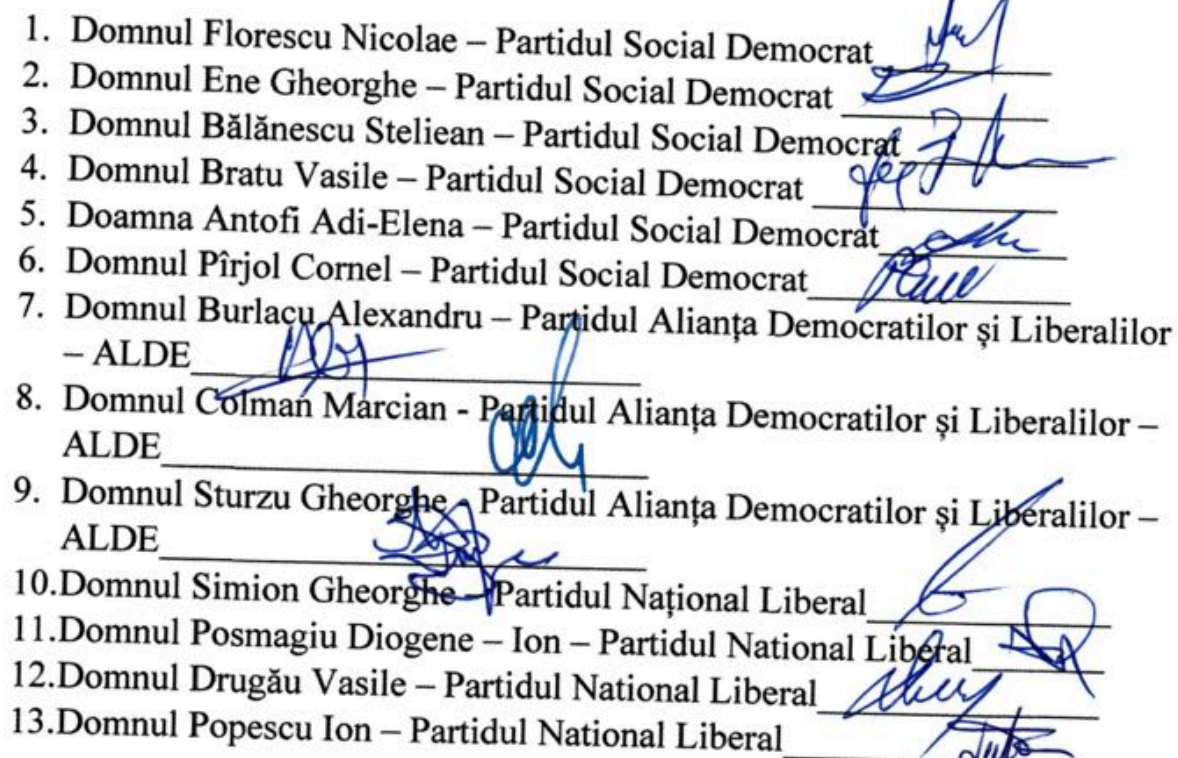 1. Domnul Florescu Nicolae – Partidul Social Democrat
2. Domnul Ene Gheorghe – Partidul Social Democrat
3. Domnul Bălănescu Steliean – Partidul Social Democrat
4. Domnul Bratu Vasile – Partidul Social Democrat
5. Doamna Antofi Adi-Elena – Partidul Social Democrat
6. Domnul Pîrjol Cornel – Partidul Social Democrat
7. Domnul Burlacu Alexandru – Partidul Alianța Democratilor și Liberalilor
– ALDE
8. Domnul Colman Marcian - Partidul Alianța Democratilor și Liberalilor –
ALDE
9. Domnul Sturzu Gheorghe - Partidul Alianța Democratilor și Liberalilor –
ALDE
10.Domnul Simion Gheorghe – Partidul Național Liberal
11.Domnul Posmagiu Diogene – Ion – Partidul National Liberal
12.Domnul Drugău Vasile – Partidul National Liberal
13.Domnul Popescu Ion – Partidul National Liberal